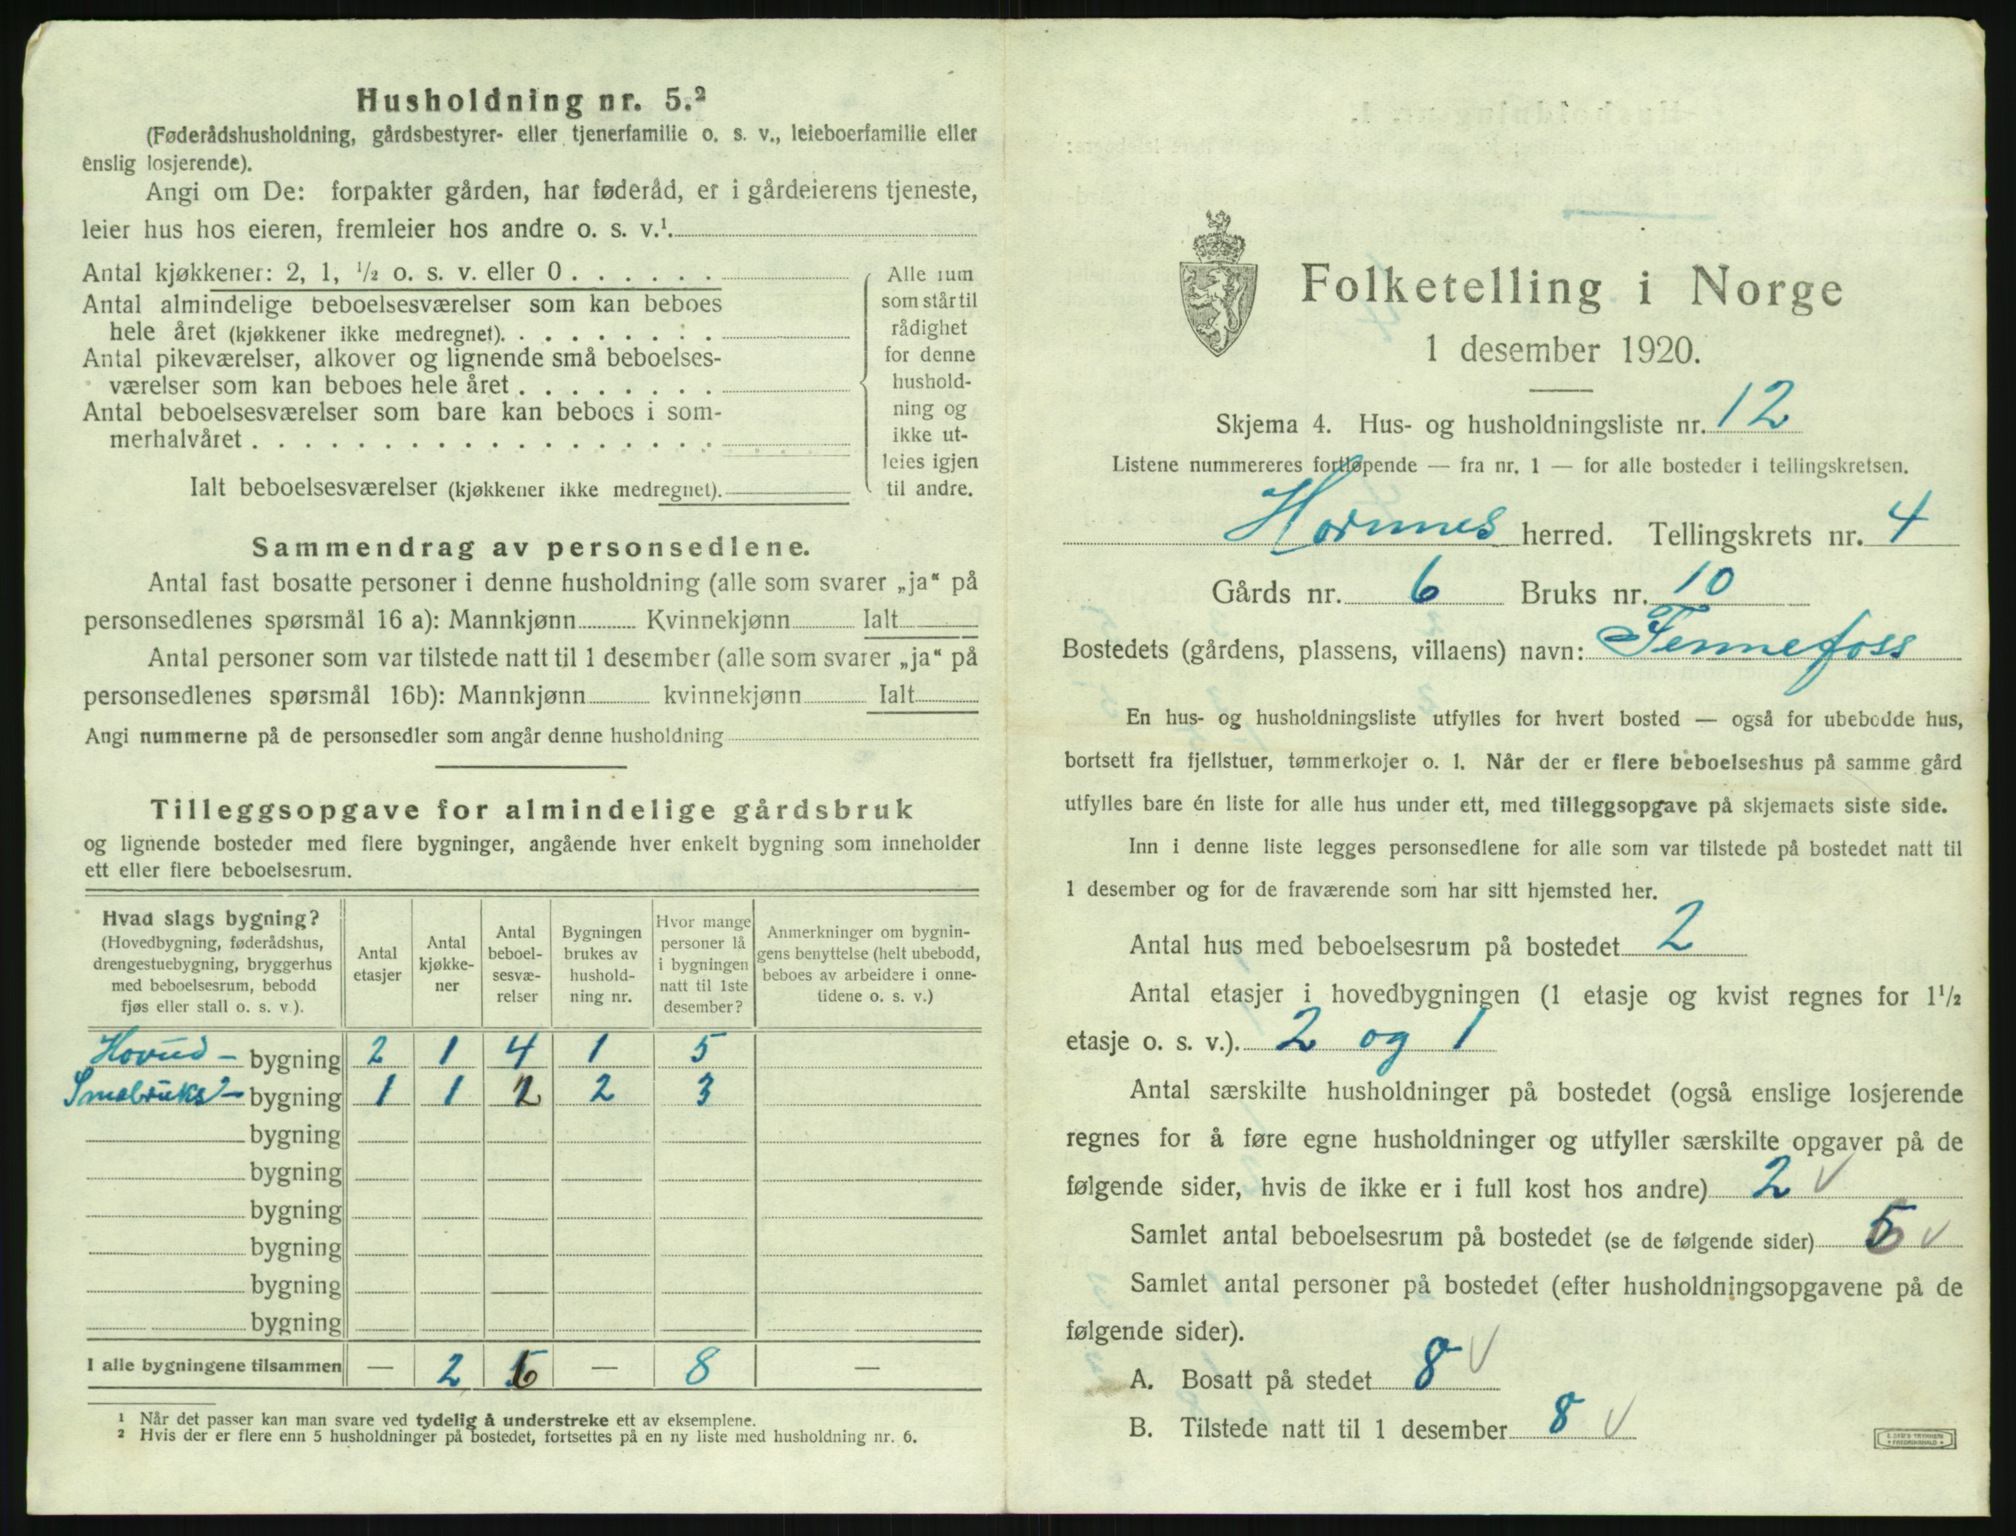 Husholdning nr. 5.²
(Føderådshusholdning, gårdsbestyrer- eller tjenerfamilie o. s. v., leieboerfamilie eller
enslig losjerende).
Angi om De: forpakter gården, har føderåd, er i gårdeierens tjeneste,
leier hus hos eieren, fremleier hos andre o. s. v.¹
Antal kjøkkener: 2, 1, ½ o. s. v. eller 0
Antal almindelige beboelsesværelser som kan beboes
hele året (kjøkkener ikke medregnet)
Antal pikeværelser, alkover og lignende små beboelses-
værelser som kan beboes hele året
Antal beboelsesværelser som bare kan beboes i som-
merhalvåret
Ialt beboelsesværelser (kjøkkener ikke medregnet)
Alle rum
som står til
rådighet
for denne
hushold-
ning og
ikke ut-
leies igjen
til andre.
Sammendrag av personsedlene.
Antal fast bosatte personer i denne husholdning (alle som svarer „ja“ på
personsedlenes spørsmål 16 a): Mannkjønn Kvinnekjønn Ialt
Antal personer som var tilstede natt til 1 desember (alle som svarer „ja“ på
personsedlenes spørsmål 16b): Mannkjønn kvinnekjønn Ialt
Angi nummerne på de personsedler som angår denne husholdning
Tilleggsopgave for almindelige gårdsbruk
og lignende bosteder med flere bygninger, angående hver enkelt bygning som inneholder
ett eller flere beboelsesrum.
Hvad slags bygning?
(Hovedbygning, føderådshus,
drengestuebygning, bryggerhus
med beboelsesrum, bebodd
fjøs eller stall o. s. v.).
Antal
etasjer
Antal
kjøkke-
ner
Antal
beboel-
sesvæ-
relser
Bygningen
brukes av
hushold-
ning nr.
Hvor mange
personer lå
i bygningen
natt til 1ste
desember?
Anmerkninger om bygnin-
gens benyttelse (helt ubebodd,
beboes av arbeidere i onne-
tidene o. s. v.)
Hovud- bygning 2 1 4 1 5
Smabruks- bygning 1 1 2 2 3
bygning
bygning
bygning
bygning
bygning
bygning
I alle bygningene tilsammen — 2 6 — 8 —
¹ Når det passer kan man svare ved tydelig å understreke ett av eksemplene.
² Hvis der er flere enn 5 husholdninger på bostedet, fortsettes på en ny liste med husholdning nr. 6.
Folketelling i Norge
1 desember 1920.
Skjema 4. Hus- og husholdningsliste nr. 12
Listene nummereres fortløpende — fra nr. 1 — for alle bosteder i tellingskretsen.
Hornnes herred. Tellingskrets nr. 4
Gårds nr. 6 Bruks nr. 10
Bostedets (gårdens, plassens, villaens) navn: Fennefoss
En hus- og husholdningsliste utfylles for hvert bosted — også for ubebodde hus,
bortsett fra fjellstuer, tømmerkojer o. l. Når der er flere beboelseshus på samme gård
utfylles bare én liste for alle hus under ett, med tilleggsopgave på skjemaets siste side.
Inn i denne liste legges personsedlene for alle som var tilstede på bostedet natt til
1 desember og for de fraværende som har sitt hjemsted her.
Antal hus med beboelsesrum på bostedet 2
Antal etasjer i hovedbygningen (1 etasje og kvist regnes for 1½
etasje o. s. v.). 2 og 1
Antal særskilte husholdninger på bostedet (også enslige losjerende
regnes for å føre egne husholdninger og utfyller særskilte opgaver på de
følgende sider, hvis de ikke er i full kost hos andre) 2 ✓
Samlet antal beboelsesrum på bostedet (se de følgende sider) 6 ✓
Samlet antal personer på bostedet (efter husholdningsopgavene på de
følgende sider).
A. Bosatt på stedet 8 ✓
B. Tilstede natt til 1 desember 8 ✓